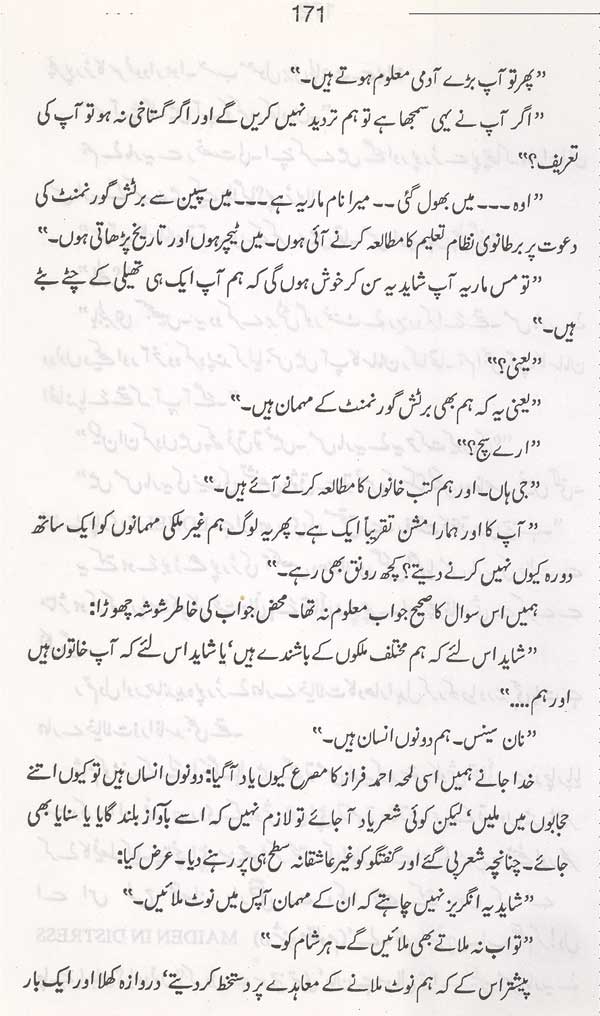 171
”پھر تو آپ بڑے آدمی معلوم ہوتے ہیں۔“
”اگر آپ نے یہی سمجھا ہے تو ہم تردید نہیں کریں گے اور اگر گستاخی نہ ہو تو آپ کی
تعریف؟“
”اوہ ۔۔۔ میں بھول گئی ۔۔ میرا نام ماریہ ہے ۔۔۔ میں سپین سے برٹش گورنمنٹ کی
دعوت پر برطانوی نظام تعلیم کا مطالعہ کرنے آئی ہوں۔ میں ٹیچر ہوں اور تاریخ پڑھاتی ہوں۔“
”تو مس ماریہ آپ شاید یہ سن کر خوش ہوں گی کہ ہم آپ ایک ہی تھیلی کے چٹے بٹے
ہیں۔“
”یعنی؟“
”یعنی یہ کہ ہم بھی برٹش گورنمنٹ کے مہمان ہیں۔“
”ارے سچ؟“
”جی ہاں۔ اور ہم کتب خانوں کا مطالعہ کرنے آئے ہیں۔“
”آپ کا اور ہمارا مشن تقریباً ایک ہے۔ پھر یہ لوگ ہم غیر ملکی مہمانوں کو ایک ساتھ
دورہ کیوں نہیں کرنے دیتے؟ کچھ رونق بھی رہے۔“
ہمیں اس سوال کا صحیح جواب معلوم نہ تھا۔ محض جواب کی خاطر شوشہ چھوڑا:
”شاید اس لئے کہ ہم مختلف ملکوں کے باشندے ہیں‘ یا شاید اس لئے کہ آپ خاتون ہیں
اور ہم ....“
”نان سینس۔ ہم دونوں انسان ہیں۔“
خدا جانے ہمیں اسی لمحہ احمد فراز کا مصرع کیوں یاد آ گیا: دونوں انساں ہیں تو کیوں اتنے
حجابوں میں ملیں‘ لیکن کوئی شعر یاد آ جائے تو لازم نہیں کہ اسے بآواز بلند گایا یا سنایا بھی
جائے۔ چنانچہ شعر پی گئے اور گفتگو کو غیر عاشقانہ سطح ہی پر رہنے دیا۔ عرض کیا:
”شاید یہ انگریز نہیں چاہتے کہ ان کے مہمان آپس میں نوٹ ملائیں۔“
”تو اب نہ ملاتے بھی ملائیں گے۔ ہر شام کو۔“
پیشتر اس کے کہ ہم نوٹ ملانے کے معاہدے پر دستخط کر دیتے‘ دروازہ کھلا اور ایک بار